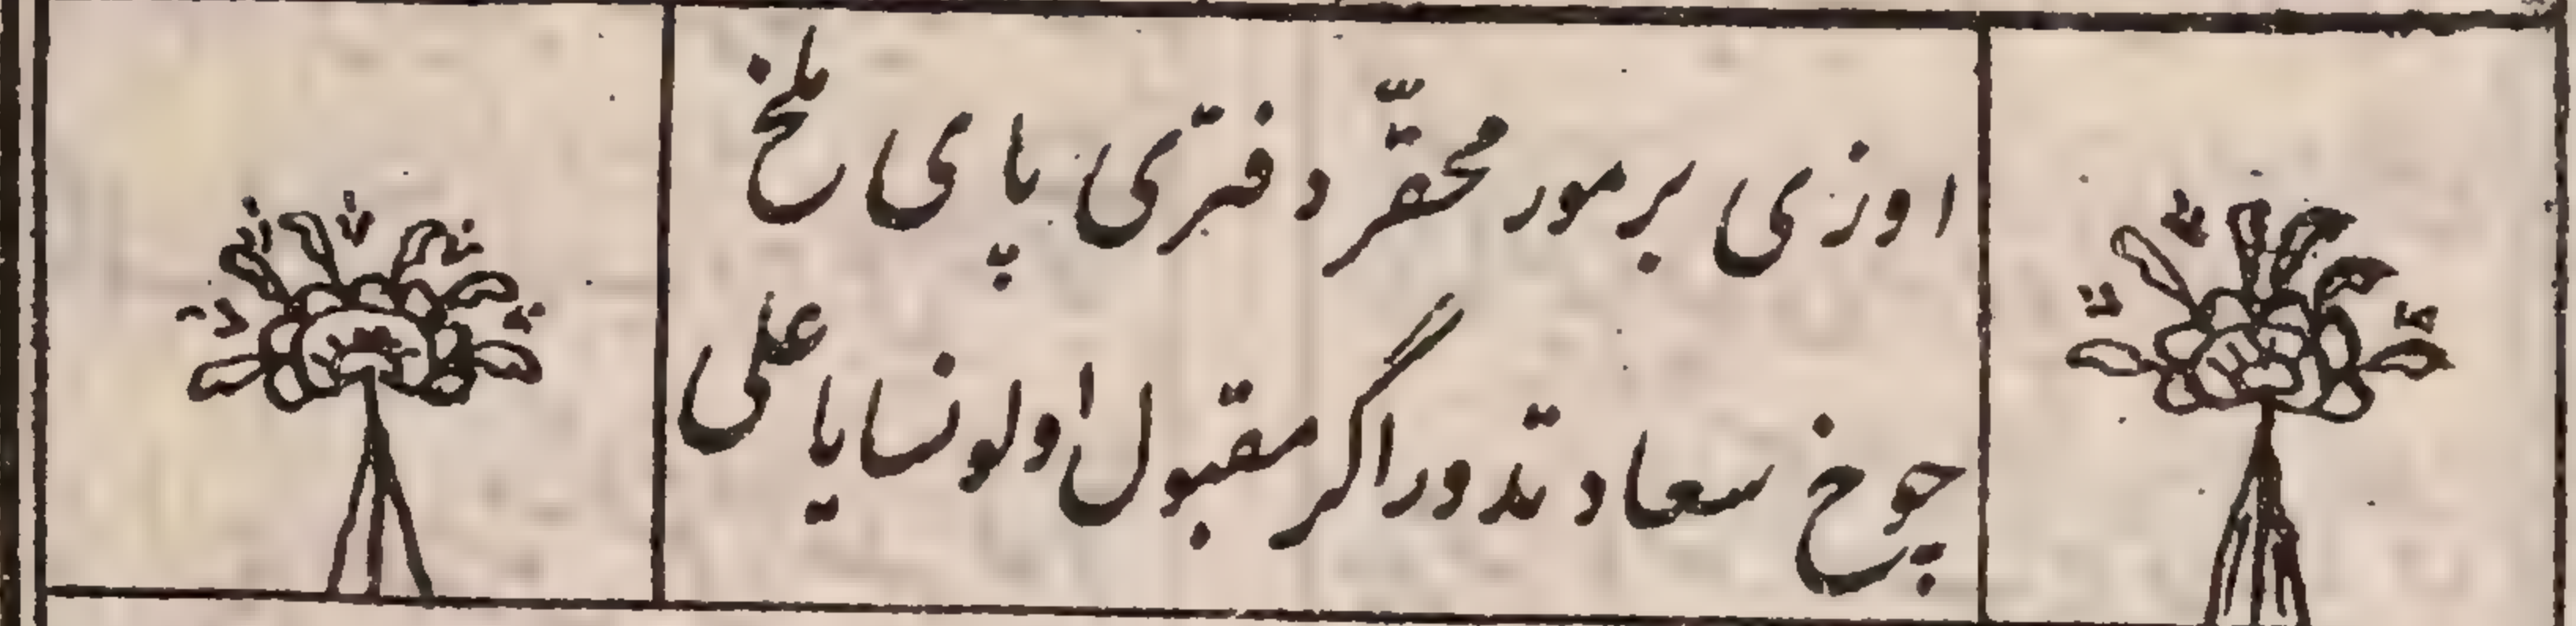 اوزی بر مور محقّر دفتری پای ملخ
چوخ سعادتدور اگر مقبول اولونسا یا علی